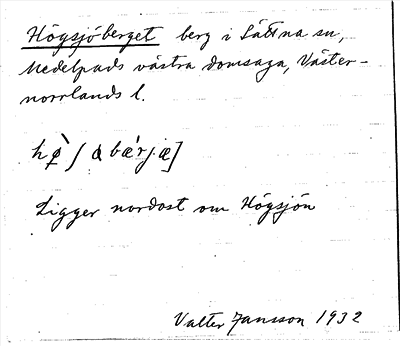 Högsjöberget berg i Låttna sn,
Medelpads västra domsaga, Väster-
norrlands l.
hø̀ʃɑbæ̀rjæ]
Ligger nordost om Högsjön
Valter Jansson 1932